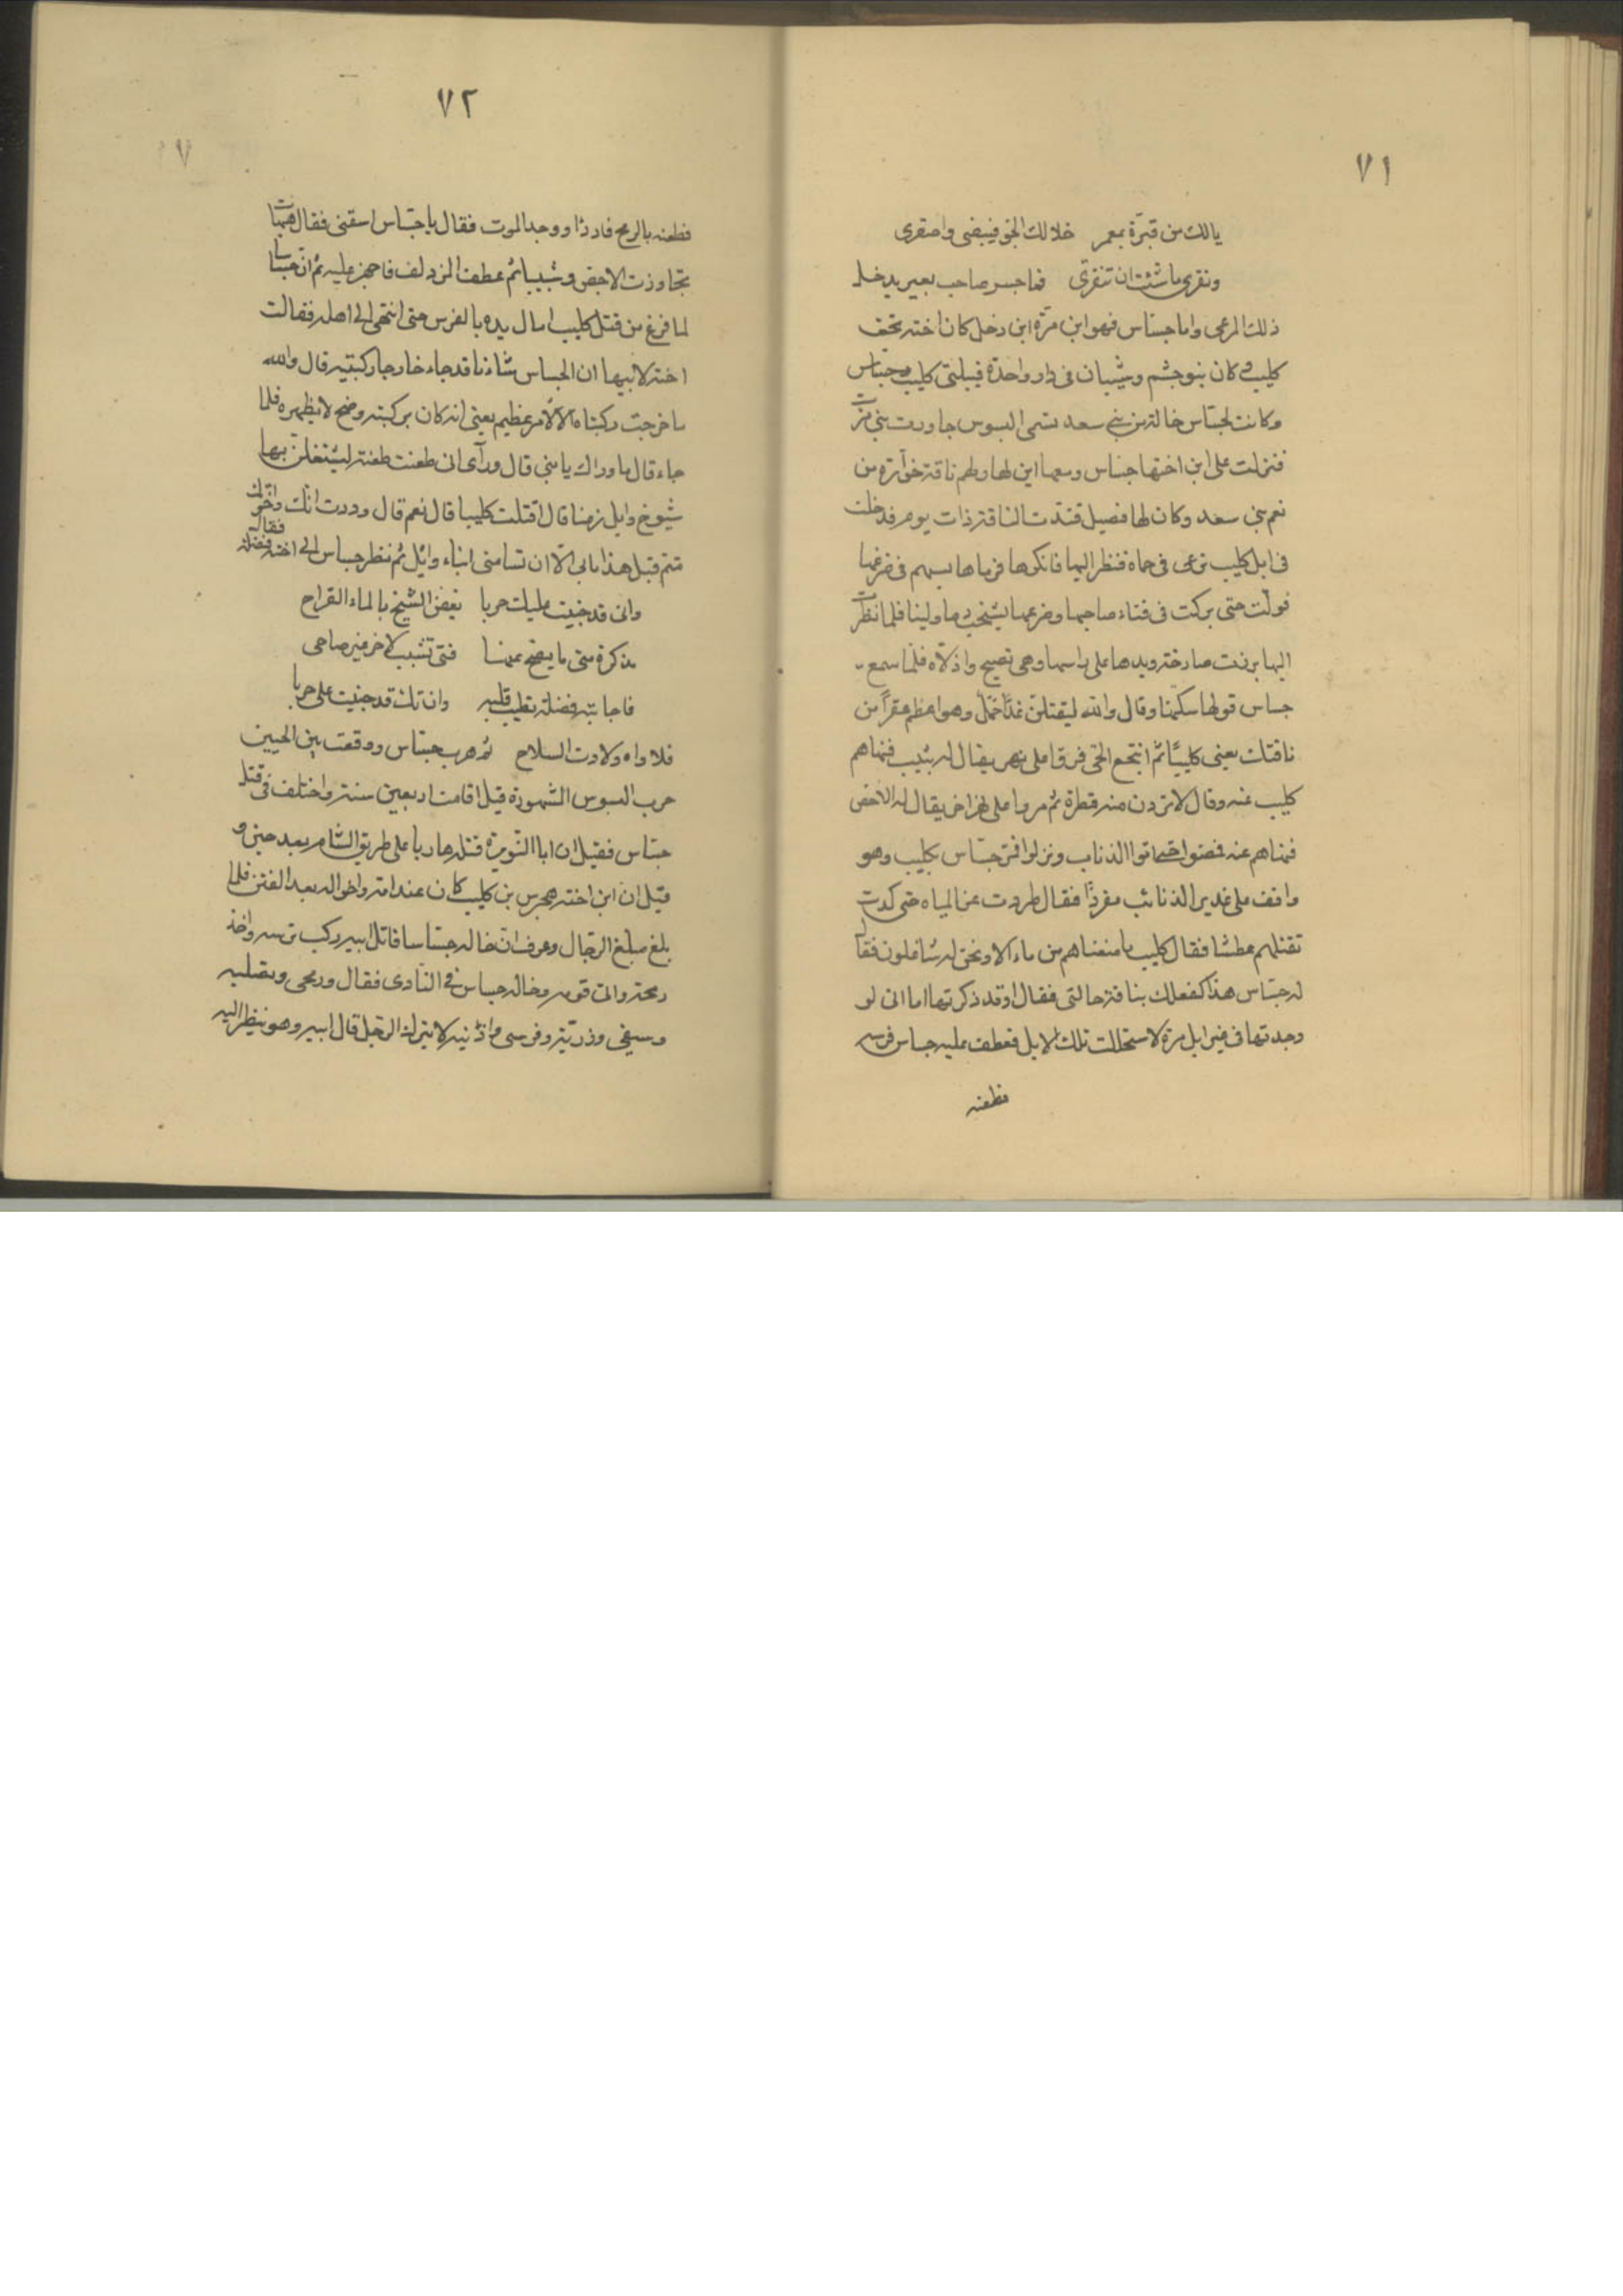 ٧١
يالك من قبرة بمعمر خلالك الجو فبيضى واصفرى
ونقرى ما شئت ان تنقرى فما جسر صاحب بعير يدخل
ذلك المرعى واما جساس فهو ابن مرة ابن دخل كان اخته تحف
كليب كان بنو جشم وشيبان فى دار واحدة قبيلتى كليب وجساس
وكانت لجساس خالة من بنى سعد تسمى البسوس جاورت بنى مرة
فنزلت على ابن اختها جساس ومعها ابن لها ولهم ناقة خوارة من
نعم بنى سعد وكان لها فصيل فندت الناقة ذات يوم فدخلت
فى ابل كليب ترعى فى حماه فنظر اليها فانكرها فرماها بسهم فى ضرعها
فولت حتى بركت فى فناء صاحبها وضرعها يشخب دما ولبنا فلما نظرت
اليها برزت صارخة ويدها على راسها وهى تصيح واذلاه فلما سمع
جساس قولها سكتها وقال والله ليقتلن غدا فحل وهو اعظم عقرا من
ناقتك يعنى كليبا ثم انتجع الحى فرقا على نهر يقال له شبيب فنهاهم
كليب عنه وقال لا تردن منه قطرة ثم مروا على نهر اخر يقال له الاحص
فنهاهم عنه فمضوا حتى اتوا الذناب ونزلوا فمر جساس بكليب وهو
واقف على غدير الذنائب مفردا فقال طردت عن المياه حتى كدت
تقتلهم عطشا فقال كليب ما منعناهم من ماء الا ونحن له شاغلون فقال
له جساس هذا كفعلك بناقة خالتى فقال اوقد ذكرتها اما انى لو
وجدتها فى غير ابل مرة لاستحللت تلك الابل فعطف عليه جساس فرسه
فطعنه
٧٢
فطعنه بالرمح فارداه ووجد الموت فقال يا جساس اسقنى فقال هيهات
تجاوزت الاحص وشبيبا ثم عطف المزدلف فاجهز عليه ثم ان جساسا
لما فرغ من قتل كليب امال يده بالفرس حتى انتهى الى اهله فقالت
اخته لابيها ان الجساس شأنا قد جاء خارجا ركبتيه قال والله
ما خرجت ركبتاه الا لامر عظيم يعنى انه كان بركبته وضح لا يظهره فلما
جاء قال ما وراك يا بنى قال ورآى انى طعنت طعنة لتشتغلن بها
شيوخ وايل زمنا قال اقتلت كليبا قال نعم قال وددت انك واخوتك
متم قبل هذا ما بى الا ان تسامنى ابناء وائل ثم نظر جساس الى اخته فضلة فقال
وانى قد جنيت عليك حربا تغص الشيخ بالماء القراح
مذكرة متى ما يصح عنها فتى تشبب لاخر غير صاحى
فاجابته فضلة تطيب قلبه وان تك قد جنيت على حربا
فلا واه ولا رث السلاح ثم هرب جساس ووقعت بين الحيين
حرب البسوس المشهورة قيل اقامت اربعين سنة واختلف فى قتل
جساس فقيل ان ابا النويرة قتله هاربا على طريق الشام بعد حين و
قيل ان ابن اخته هجرس بن كليب كان عند امه واخواله بعد الفتن فلما
بلغ مبلغ الرجال وعرف ان خاله جساسا قاتل ابيه ركب فرسه واخذ
رمحه واتى قومه وخاله جساس فى النادى فقال ورمحى ونصليه
وسيفى وذريته وفرسى واذنيه لا يترك الرجل قال ابيه وهو ينظر اليه